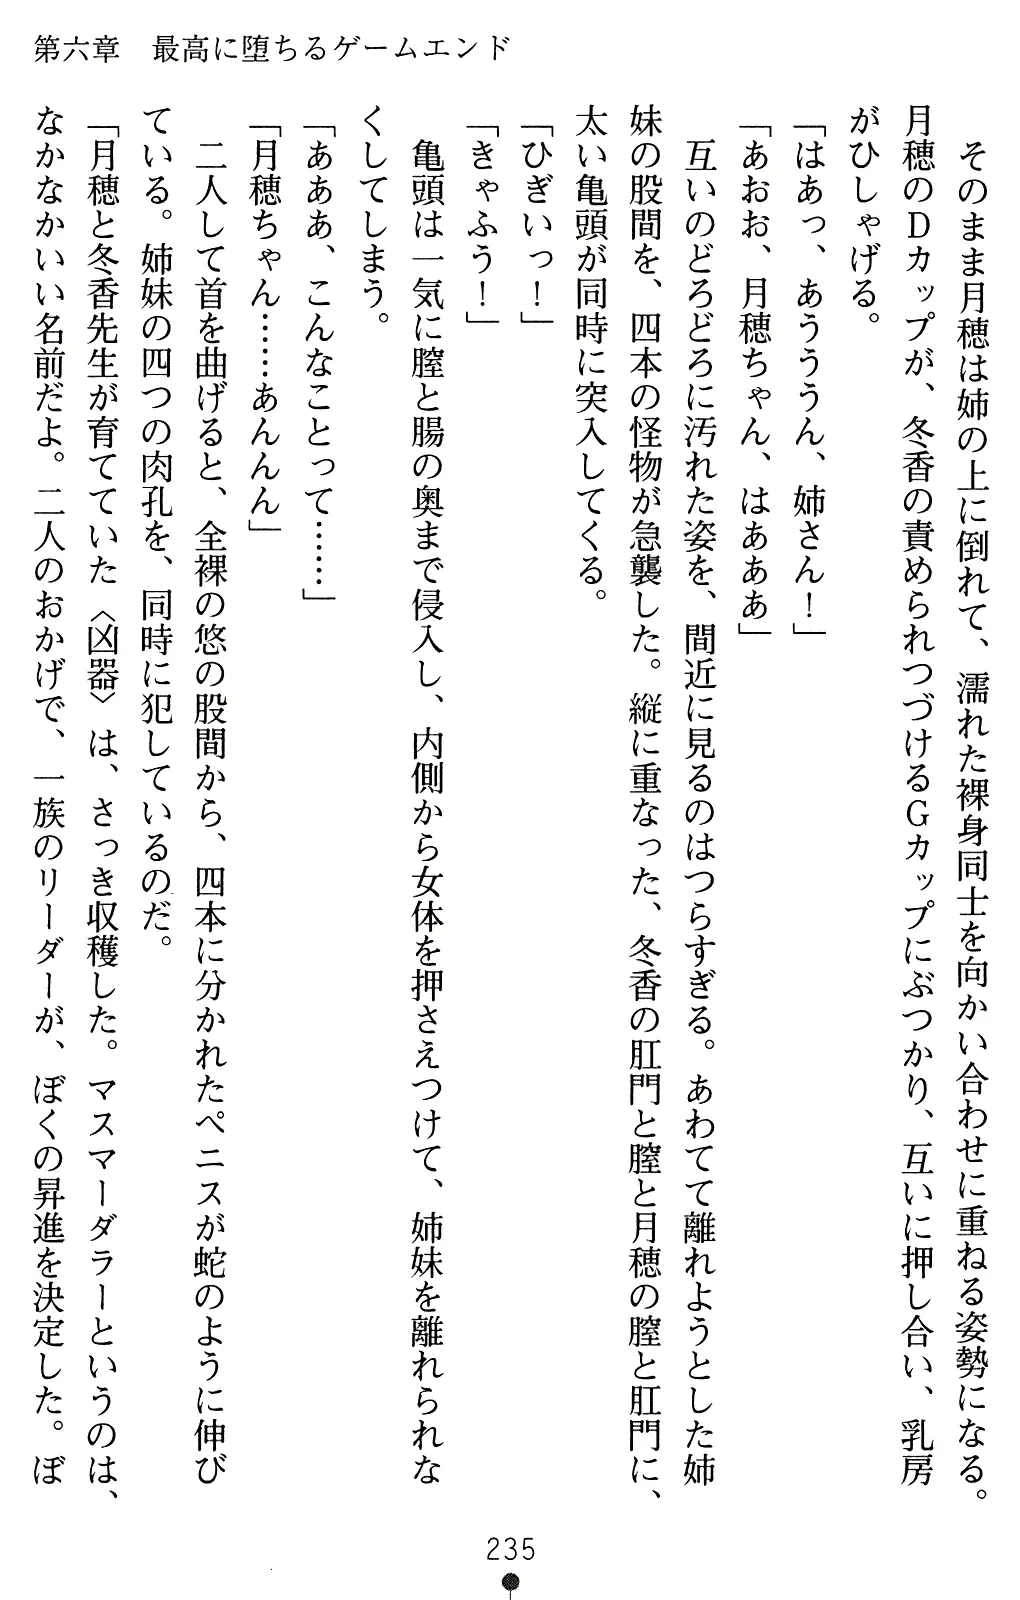 第六章　最高に堕ちるゲームエンド
　そのまま月穂は姉の上に倒れて、濡れた裸身同士を向かい合わせに重ねる姿勢になる。
月穂のDカップが、冬香の責められつづけるGカップにぶつかり、互いに押し合い、乳房
がひしゃげる。
「はあっ、あううん、姉さん！」
「あおお、月穂ちゃん、はあああ」
　互いのどろどろに汚れた姿を、間近に見るのはつらすぎる。あわてて離れようとした姉
妹の股間を、四本の怪物が急襲した。縦に重なった、冬香の肛門と膣と月穂の膣と肛門に、
太い亀頭が同時に突入してくる。
「ひぎいっ！」
「きゃふう！」
　亀頭は一気に膣と腸の奥まで侵入し、内側から女体を押さえつけて、姉妹を離れられな
くしてしまう。
「あああ、こんなことって……」
「月穂ちゃん……あんんん」
　二人して首を曲げると、全裸の悠の股間から、四本に分かれたペニスが蛇のように伸び
ている。姉妹の四つの肉孔を、同時に犯しているのだ。
「月穂と冬香先生が育てていた〈凶器〉は、さっき収穫した。マスマーダラーというのは、
なかなかいい名前だよ。二人のおかげで、一族のリーダーが、ぼくの昇進を決定した。ぼ
235